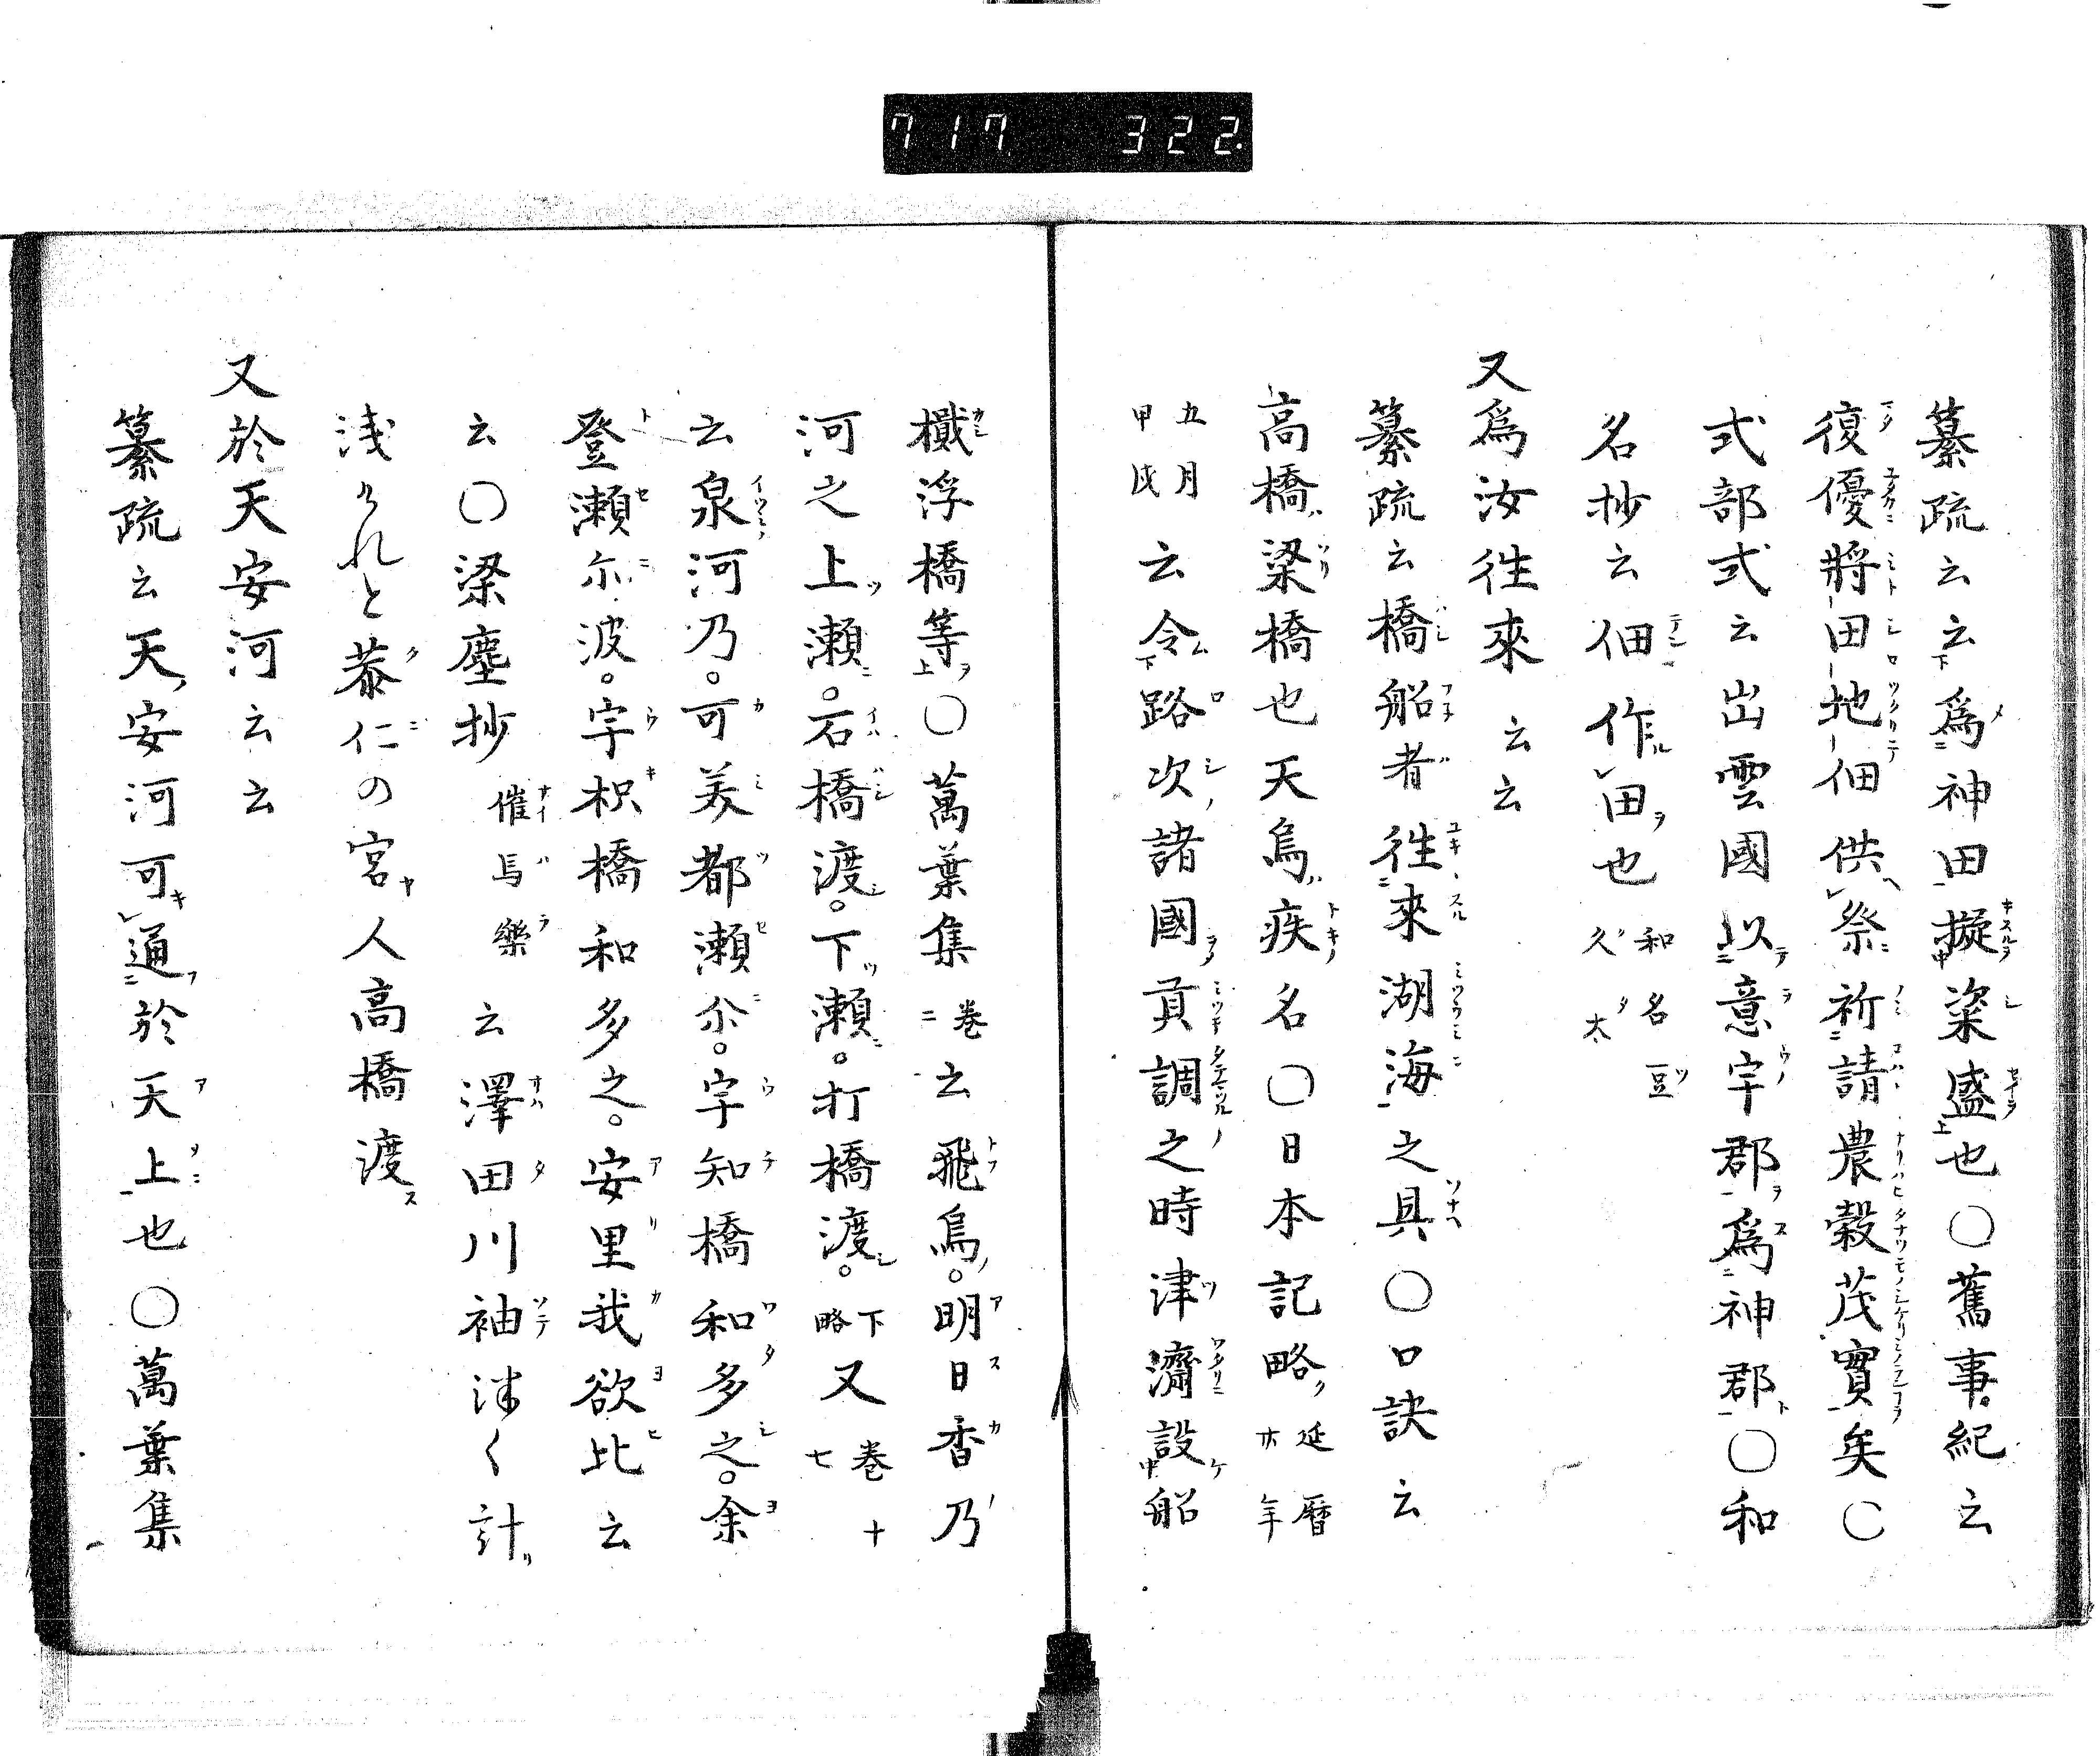 717 322.
纂疏云云爲神田擬粢盛也〇舊事紀云
復優將田地佃供祭祈請農穀茂實矣〇
式部式云出雲國以意宇郡爲神郡〇和
名抄云佃作田也和名豆久太
又爲汝往來云云
纂疏云橋船者往來湖海之具〇口訣云
高橋梁橋也天鳥疾名〇日本記略延暦廿年
五月甲戌云令路次諸國貢調之時津濟設船
檝浮橋等〇萬葉集巻二云飛鳥。明日香乃
河之上瀬。石橋渡。下瀬。打橋渡。下略又巻十七
云泉河乃。可美都瀬尒。宇知橋和多之。余
登瀬尒波。宇枳橋和多之。安里我欲比云
云〇梁塵抄催馬樂云澤田川袖漬く計
浅けれと恭仁の宮人高橋渡ス
又於天安河云云
纂疏云天安河可通於天上也〇萬葉集